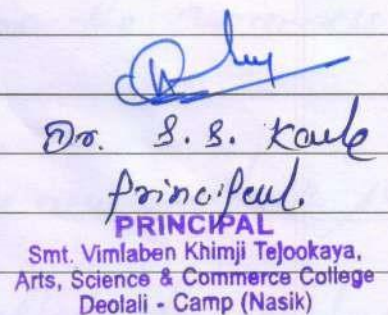 Dr. S. S. Kavle
Principal.
PRINCIPAL
Smt. Vimlaben Khimji Tejookaya,
Arts, Science & Commerce College
Deolali - Camp (Nasik)